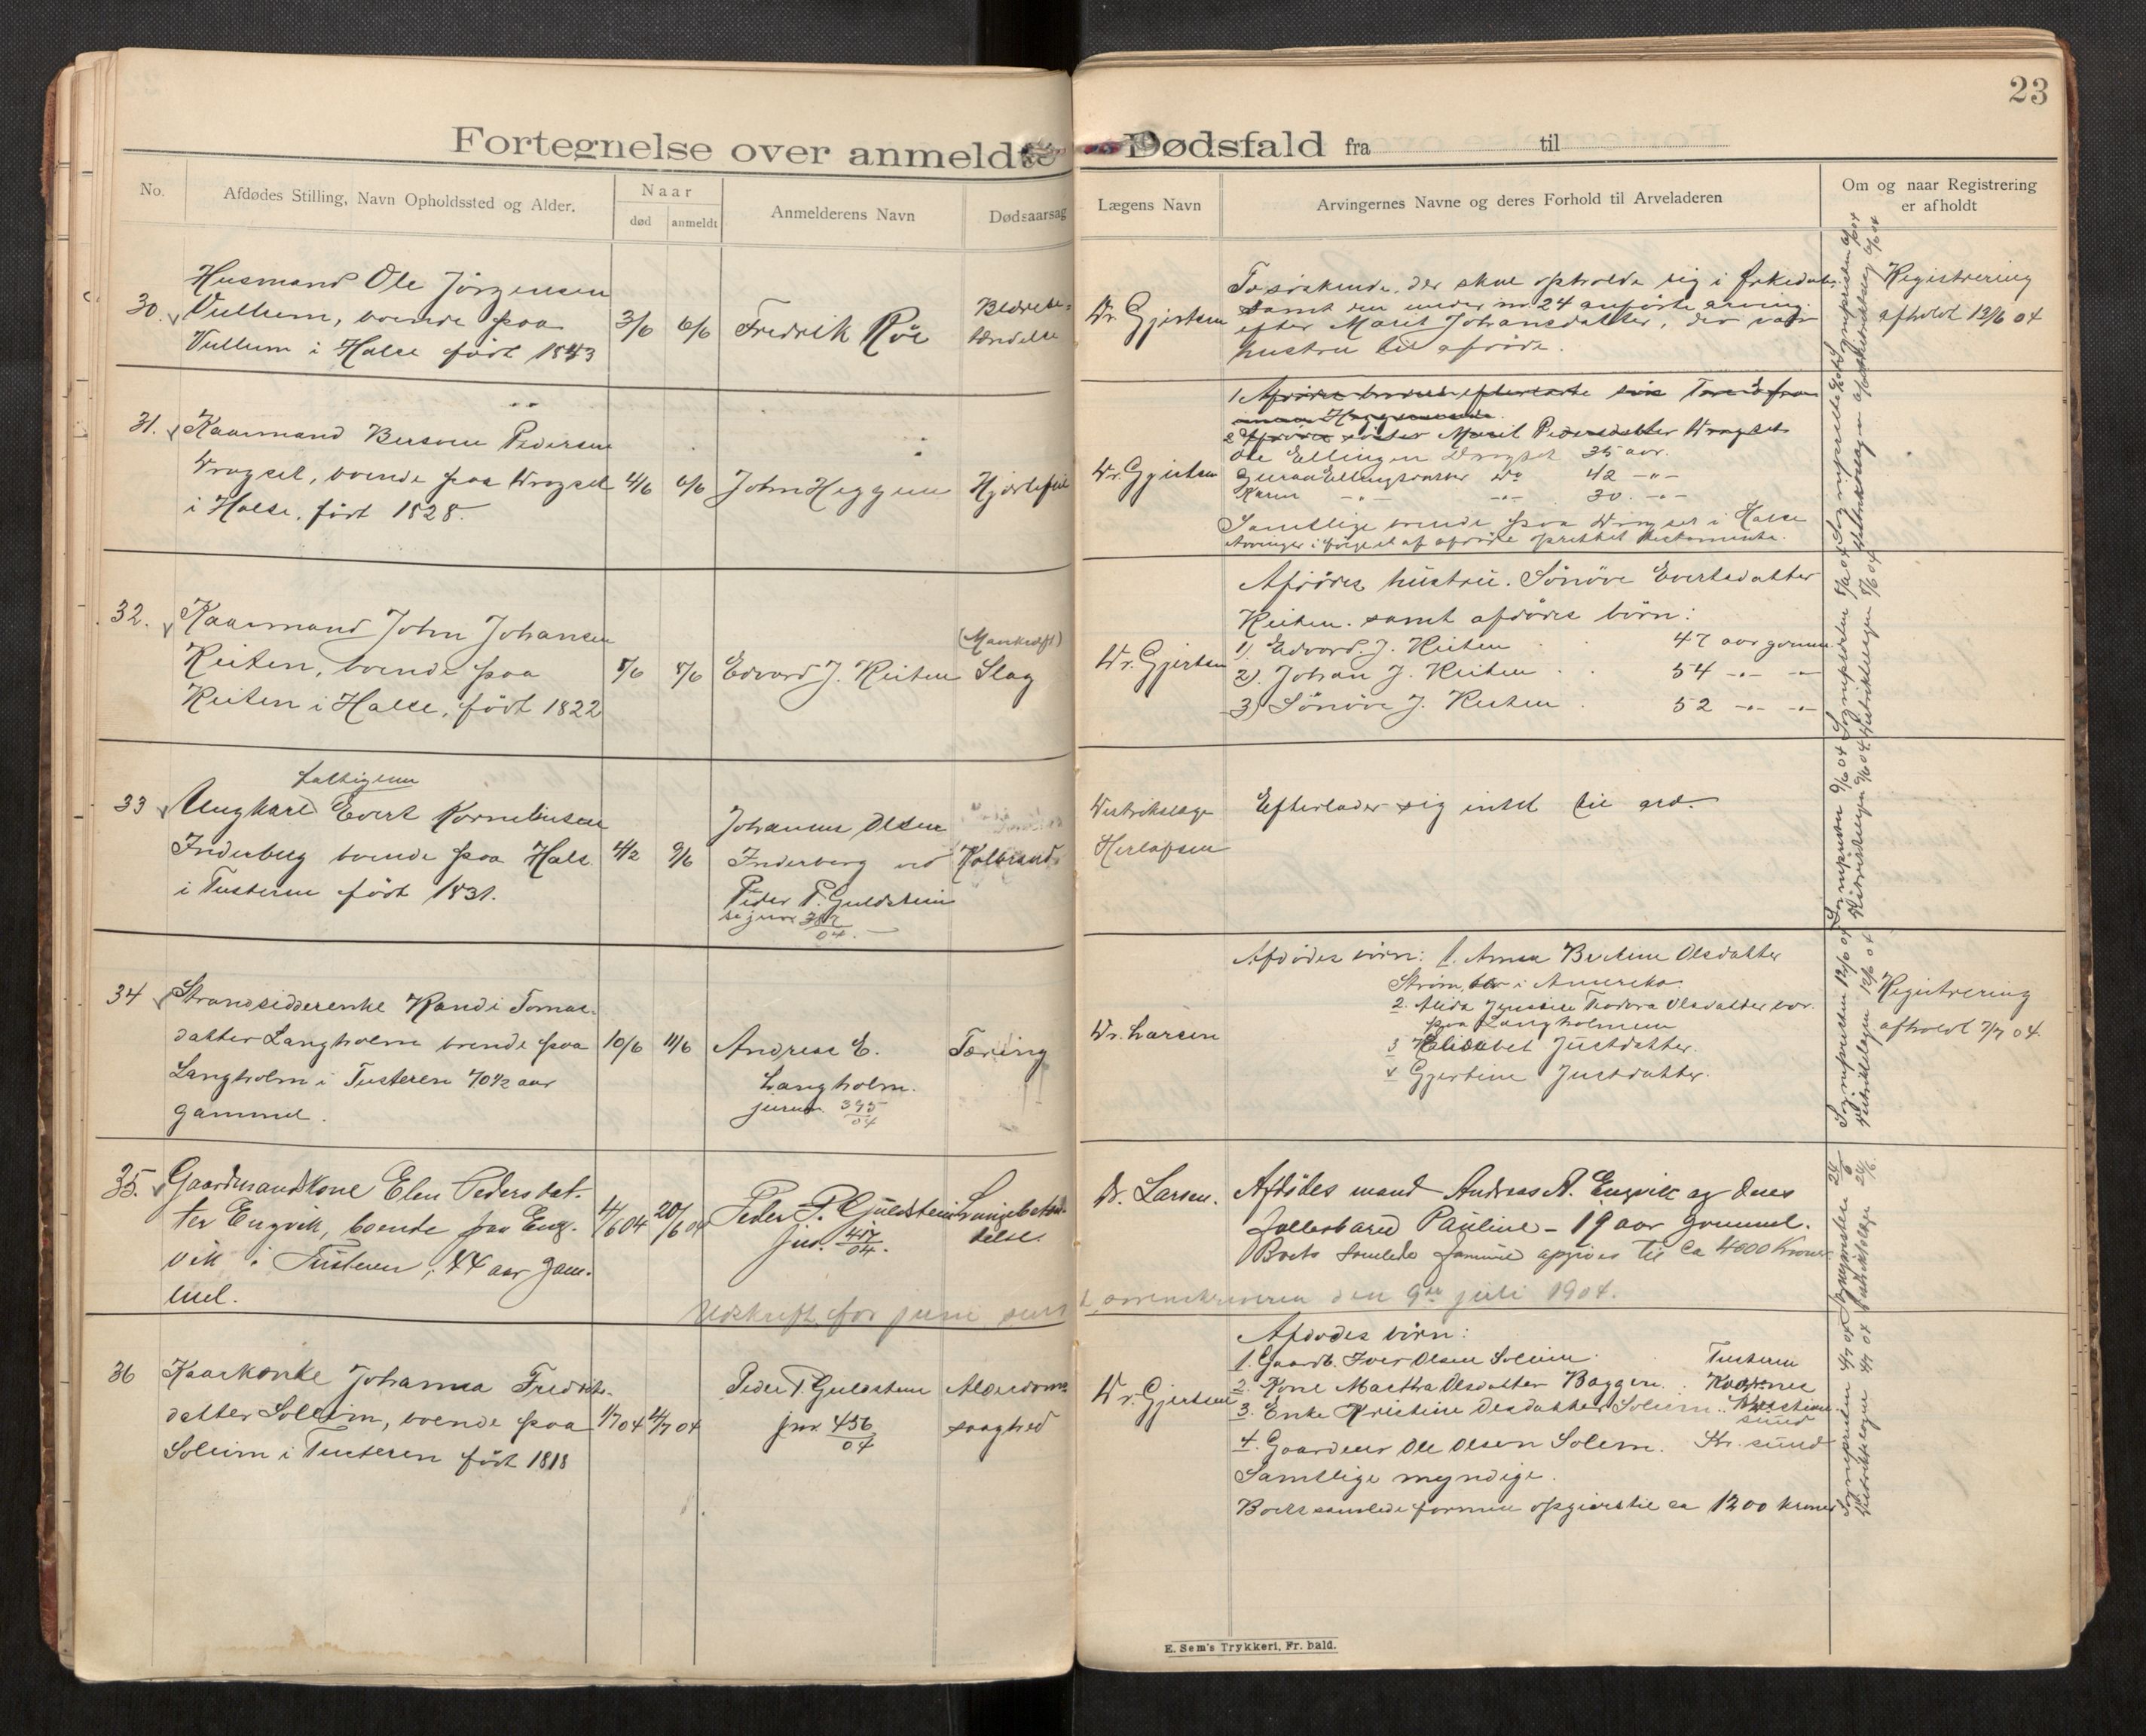 23
Fortegnelse over anmeldte Dødsfald fra til
No.
Afdødes Stilling, Navn Opholdssted og Alder.
Naar
død
anmeldt
Anmelderens Navn
Dødsaarsag
Lægens Navn
Arvingernes Navne og deres Forhold til Arveladeren
Om og naar Registrering
er afholdt
30.
Husmand Ole Jörgensen
Vullum, boende paa
Vullum i Halse födt 1843
3/6
6/6
Fredrik Röe
Blærebe-
tændelse
Dr. Gjertsen
To söskende, der skal opholde sig i
samt den under nr 24 anförte arving
efter Marit Johansdatter, der var
hustru til afdöde.
Registrering
afholdt 13/6 04
31.
Kaarmand Bersven Pedersen
Drogset, boende paa Drogset
i Halse, födt 1828.
4/6
6/6
John Heggem
Hjertefeil
Dr. Gjertsen
2 Afdödes söster Marit Pedersdatter Drogset
Ole Ellingsen Drogset 35 aar.
Ellingsdatter do 42 -"-
Karen -"- -"- 30. -"-
Samtlige boende paa Drogset i Halse
Arvinger i fölge et af afdöde oprettet testamente.
32.
Kaarmand John Johansen
Reiten, boende paa
Reiten i Halse, födt 1822
8/6
8/6
Edvard J. Reiten
(Mankraft)
Slag
Dr. Gjertsen
Afdödes hustru. Sönöve Evertsdatter
Reiten. samt afdödes börn:
1) Edvard J. Reiten 47 aar gamm
2). Johan J. Reiten 54 -"- -"-
3) Sönöve J. Reiten 52 -"- -"-
33
fattiglem
Ungkarl Evert Korneliusen
Inderberg boende paa Hals
i Tusteren födt 1831.
4/2
9/6
Johannes Olsen
Inderberg ved
Peder P. Guldstein
04.
Koldbrand
Distriktslæge
Herlofsen
Efterlader sig intet til arv.
34
Strandsidderenke Randi Tomas-
datter Langholm boende paa
Langholm i Tusteren 70½ aar
gammel.
10/6
11/6
Andreas E.
Langholm.
jurnr. 395
04
Tæring
Dr. Larsen
Afdödes börn: 1. Anna Bertine Olsdatter
Ström, bor i Amerika.
2. Alida Teodora Olsdatter bor
paa Langholmen
3 Elisabet Justdatter.
4 Gjertine Justdatter.
Registrering
afholdt 7/7 04.
35.
Gaardmandskone Elen Pedersdat-
ter Engvik, boende paa Eng-
vik i Tusteren, 44 aar gam-
mel.
20/6 04
Peder P. Guldstein
jnr. 417
04.
Lungebetæn-
delse.
Dr. Larsen.
Afdödes mand Andreas A. Engvik og deres
fællesbarn Pauline - 19 aar gammel.
Boets samlede formue opgives til ca 4000 Kroner.
Udskrift for juni sendt sorenskriveren den 9de juli 1904.
36
Kaarkonke Johanna Fredriks-
datter Soleim, boende paa
Soleim i Tusteren födt 1818
1/7 04
4/7 04
Peder P. Guldstein
jnr. 456
04
Alderdoms-
svaghed
Dr. Gjertsen
Afdödes börn:
1. Gaardb. Iver Olsen Soleim. Tusteren
2. Kone Martha Olsdatter Baggen.
3. Enke Kristine Olsdatter Soleim. Kristian-
sund
4. Gaardeier Ole Olsen Solem. Kr. sund
Samtlige myndige.
Boets samlede formue opgives til ca 1200 kroner
E. Sem's Trykkeri, Fr. hald.